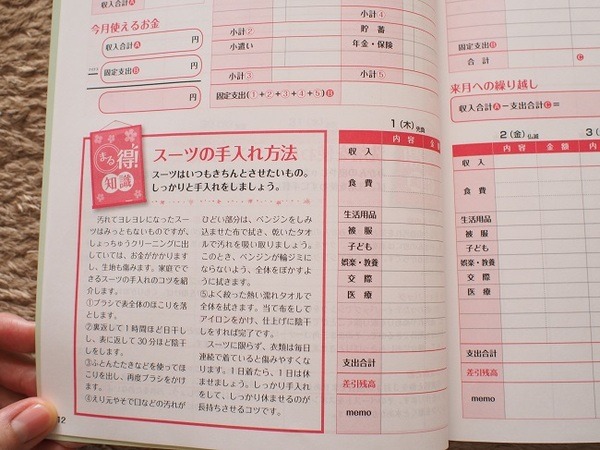 収入合計A
今月使えるお金
収入合計A 円
固定支出B 円
円
小計②
小遣い
小計③
小計④
貯蓄
年金・保険
小計⑤
固定支出(①+②+③+④+⑤)B
固定支出B
合計 C
来月への繰り越し
収入合計A−支出合計C＝
まる得!
知識
スーツの手入れ方法
スーツはいつもきちんとさせたいもの。
しっかりと手入れをしましょう。
汚れてヨレヨレになったスー
ツはみっともないものですが、
しょっちゅうクリーニングに出
していては、お金がかかります
し、生地も傷みます。家庭でで
きるスーツの手入れのコツを紹
介します。
①ブラシで表全体のほこりを落と
します。
②裏返して1時間ほど日干し
し、表に返して30分ほど陰干
しをします。
③ふとんたたきなどを使ってほ
こりを出し、再度ブラシをかけ
ます。
④えり元やそで口などの汚れが
ひどい部分は、ベンジンをしみ
込ませた布で拭き、乾いたタオ
ルで汚れを吸い取りましょう。
このとき、ベンジンが輪ジミに
ならないよう、全体をぼかすよ
うに拭きます。
⑤よく絞った熱い濡れタオルで
全体を拭きます。当て布をして
アイロンをかけ、仕上げに陰干
しをすれば完了です。
スーツに限らず、衣類は毎日
連続で着ていると傷みやすくな
ります。1日着たら、1日は休
ませましょう。しっかり手入れ
をして、しっかり休ませるのが
長持ちさせるコツです。
12
1(木)先負
内容 金額
収入
食費
生活用品
被服
子ども
娯楽・教養
交際
医療
支出合計
差引残高
memo
2(金)仏滅
内容 金額
収入
食費
生活用品
被服
子ども
娯楽・教養
交際
医療
支出合計
差引残高
memo
3(
内